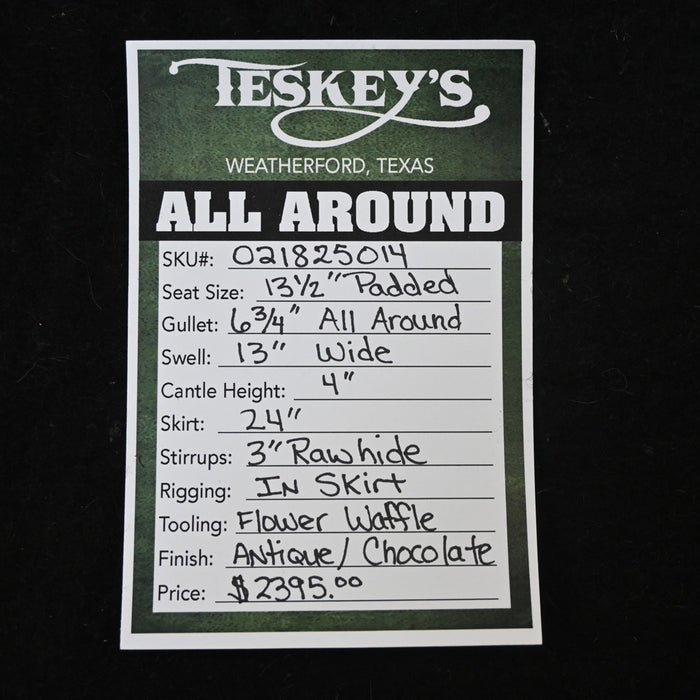 TESKEY'S
WEATHERFORD, TEXAS
ALL AROUND
SKU#: 021825014
Seat Size: 13½" Padded
Gullet: 6¾" All Around
Swell: 13" Wide
Cantle Height: 4"
Skirt: 24"
Stirrups: 3" Rawhide
Rigging: IN SKirt
Tooling: Flower Waffle
Finish: ANtique/Chocolate
Price: $2395.00